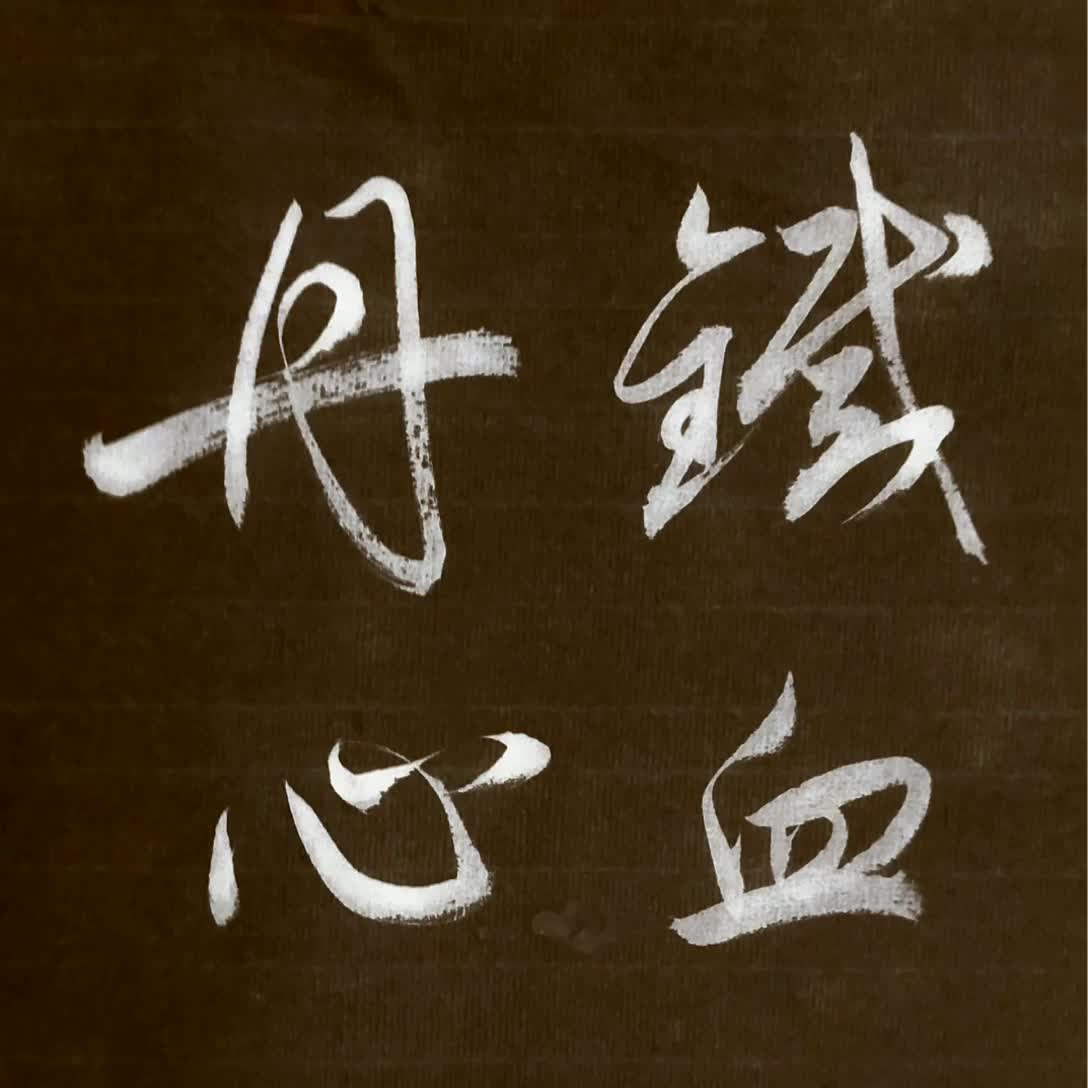 鐵血
丹心